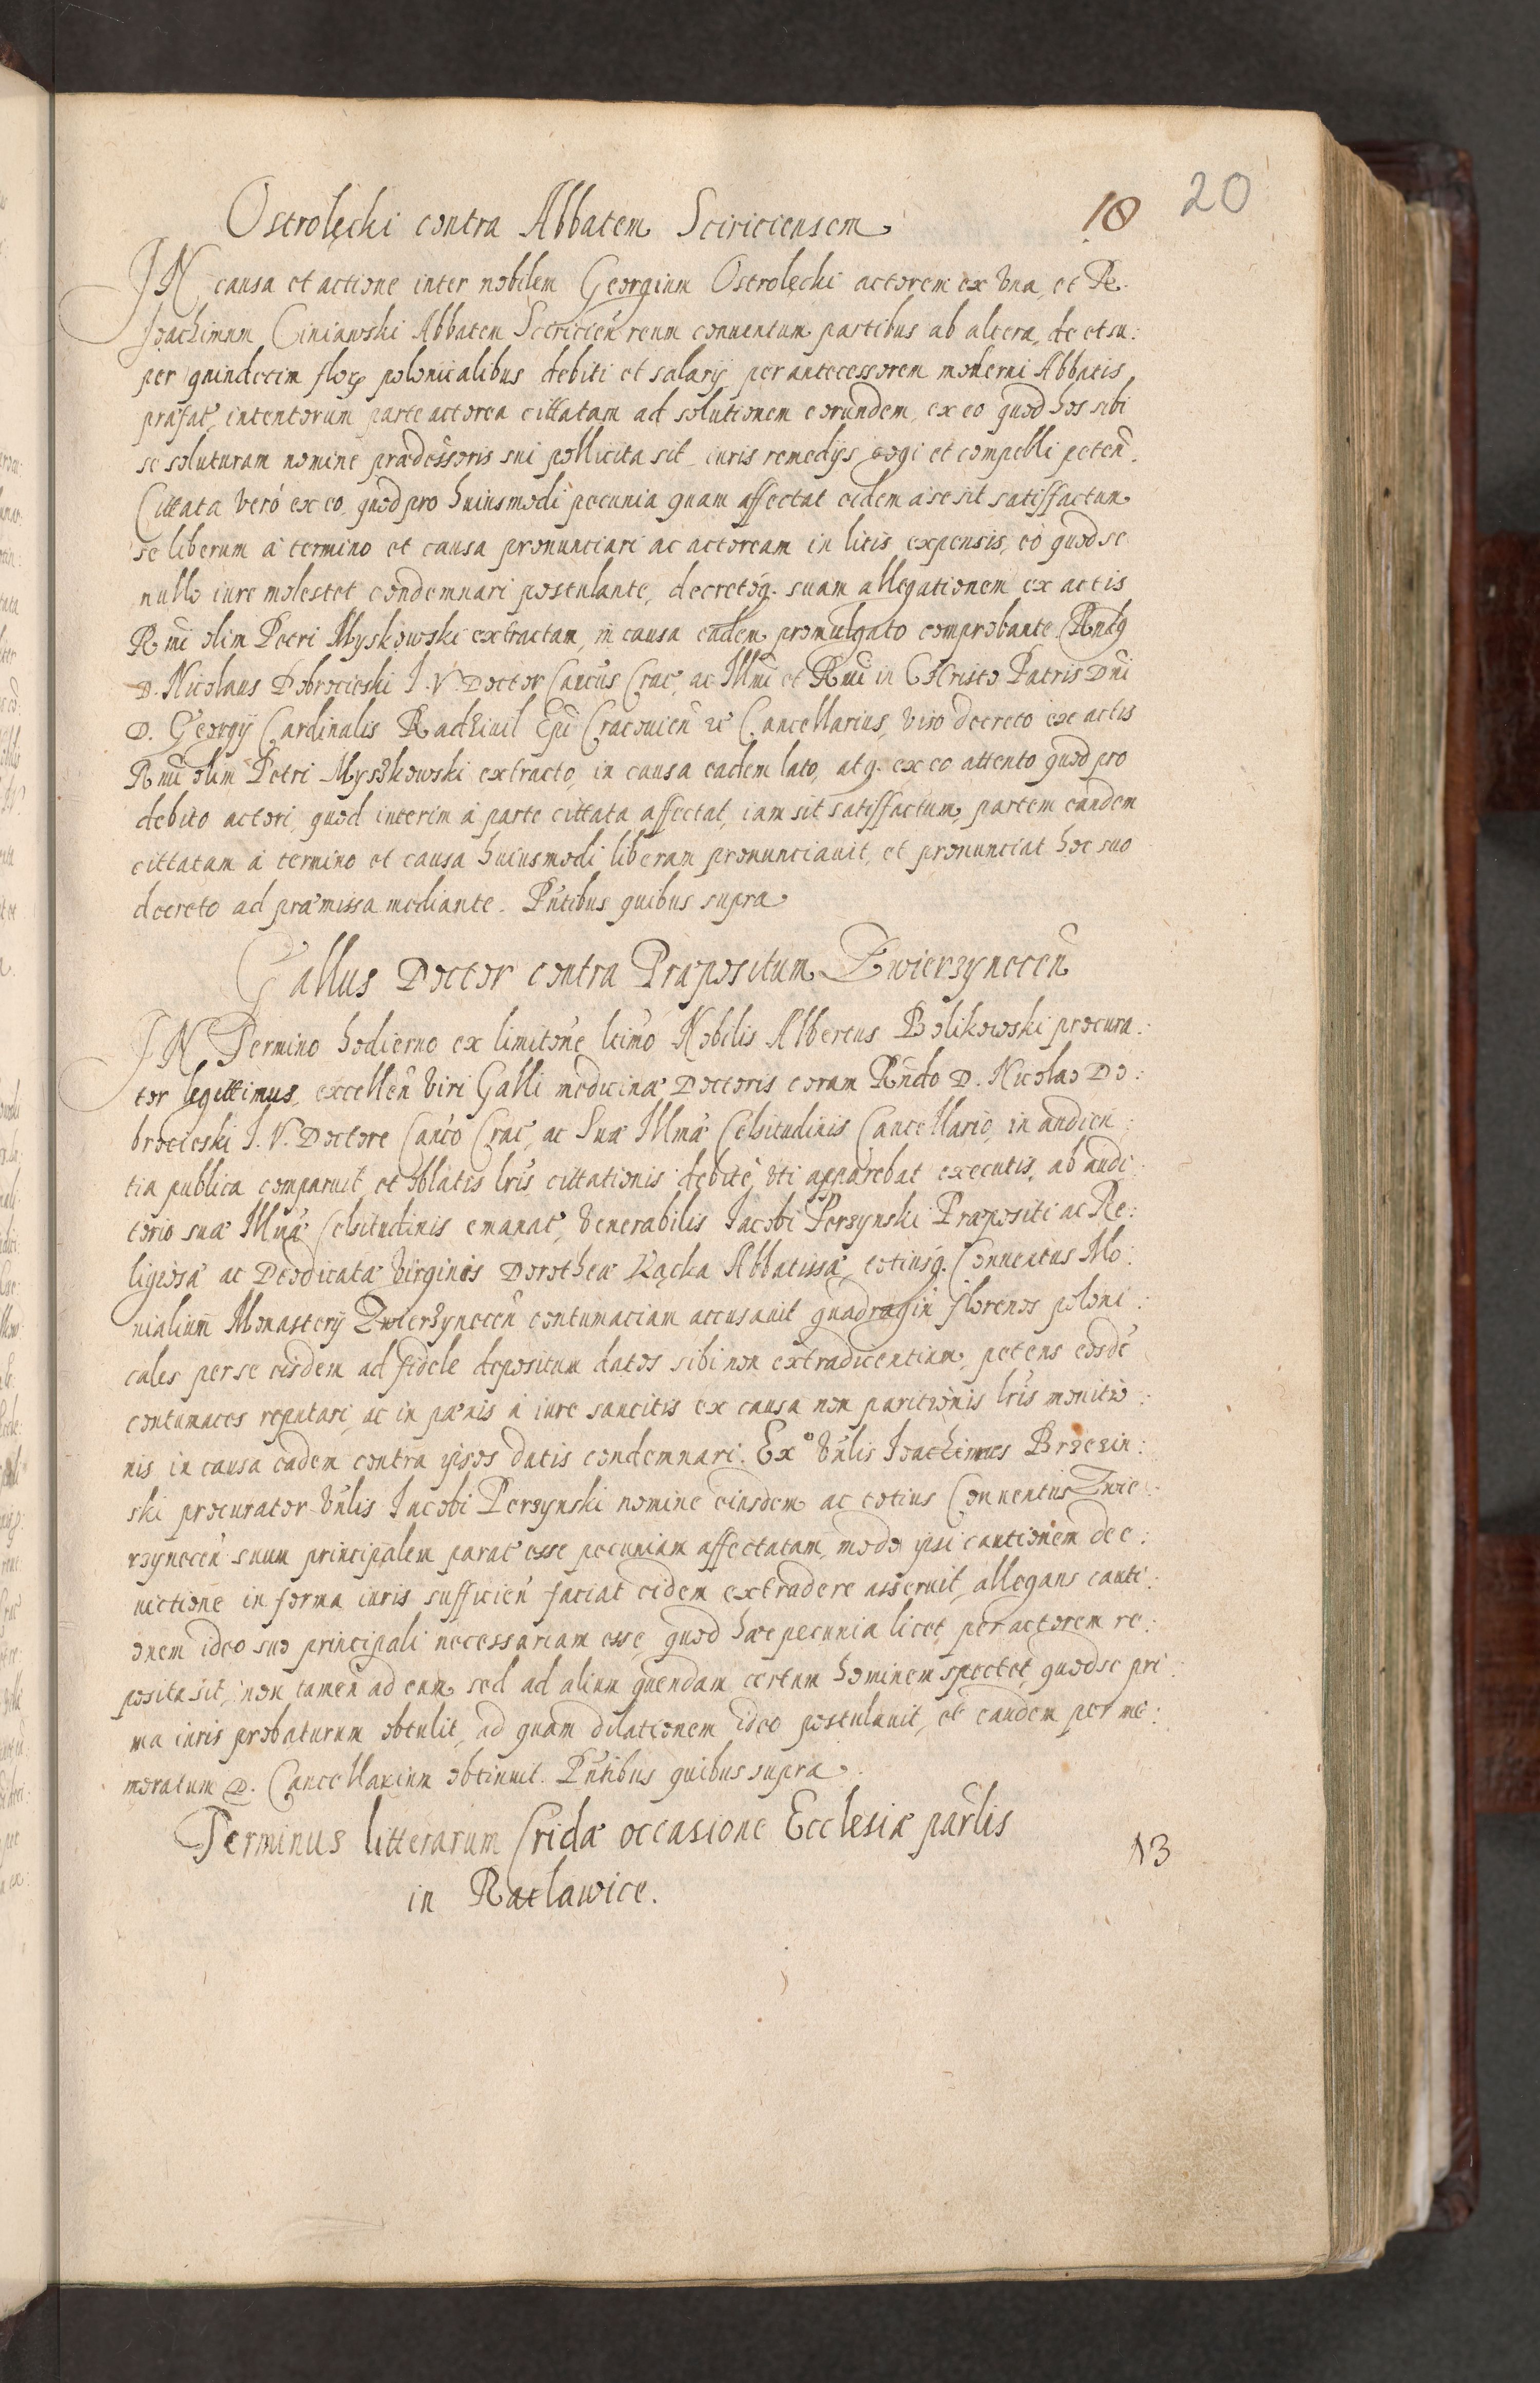 20
18
Ostrolęcki contra Abbatem Sciriciensem
IN causa et actione inter nobilem Georgium Ostrolęcki actorem ex Vna, et Re.
Ioachimum Ciniawski Abbatem Sciricień reum conuentum partibus ab altera, de et su:
per quindecim floꝝ polonicalibus debiti et salarij per antecessorem moderni Abbatis
præfat, intentorum parte actorea cittatam ad solutionem eorundem, ex eo quod hos sibi
se soluturam nomine prædecessoris sui pollicita sit iuris remedijs cogi et compelli peteñ.
Cittata verò ex eo, quod pro huiusmodi pecunia quam affectat eidem à se sit satisfactum
se liberum à termino et causa pronunciari ac actoream in litis expensis, eò quod se
nullo iure molestet condemnari postulante, decretóq. suam allegationem ex actis
Rmi olim Petri Myskowski extractam, in causa eadem promulgato comprobante Rndq
D. Nicolaus Dobrocieski I. V. Doctor Cancus Crac, ac Illmi et Rmi in CHristo Patris Dni
D. Georgij Cardinalis Radziuil Epi Cracouień &c Cancellarius, viso decreto ex actis
Rmi olim Petri Myszkowski extracto, in causa eadem lato, atq. ex eo attento quod pro
debito actori, quod interim à parte cittata affectat, iam sit satisfactum, partem eandem
cittatam à termino et causa huiusmodi liberam pronunciauit, et pronunciat hoc suo
decreto ad præmissa mediante. Pñtibus quibus supra
Gallus Doctor contra Præpositum Zwierzynecen̄
IN Termino hodierno ex limitone ltimo Nobilis Albertus Bolikowski procura:
tor legittimus excelleñ Viri Galli medicinæ Doctoris coram Rndo D. Nicolao Do:
brocieski I. V. Doctore Canco Crac, ac Suæ Illmæ Celsitudinis Cancellario, in audien:
tia publica comparuit et oblatis lris cittationis debitè, vti apparebat executis, ab audi:
torio suæ Illmæ Celsitudinis emanat, Venerabilis Iacobi Perzynski Præpositi ac Re:
ligiosæ ac Deodicatæ Virginis Dorotheæ Kącka Abbatissæ, totiusq. Conuentus Mo:
nialium Monasterij Zwierzyneceñ contumaciam accusauit quadragin florenos poloni:
cales per se eisdem ad fidele depositum datos sibi non extradicentium, petens eosdē
contumaces reputari, ac in pænis à iure sancitis ex causa non paritionis lris monitio:
nis in causa eadem contra ipsos datis condemnari. Exº Vnlis Ioachimus Brzezin:
ski procurator Vnlis Iacobi Perzynski nomine eiusdem ac totius Conuentus Zwie:
rzyneceñ suum principalem parat esse pecuniam affectatam, modo ipsi cautionem de e:
uictione in forma iuris sufficień faciat eidem extradere asseruit, allegans cauti:
onem ideo suo principali necessariam esse, quod hæc pecunia licet per actorem re:
posita sit, non tamen ad eum sed ad alium quendam certum hominem spectet, quod se pri:
ma iuris probaturum obtulit, ad quam dilationem ideo postulauit, et eandem per me:
moratum D. Cancellarium obtinuit. Pñtibus quibus supra.
Terminus litterarum Cridæ occasione Ecclesiæ parlis
in Racławice.
N3